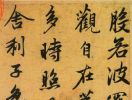 般若波羅
觀自在菩
多時照
舍利子色